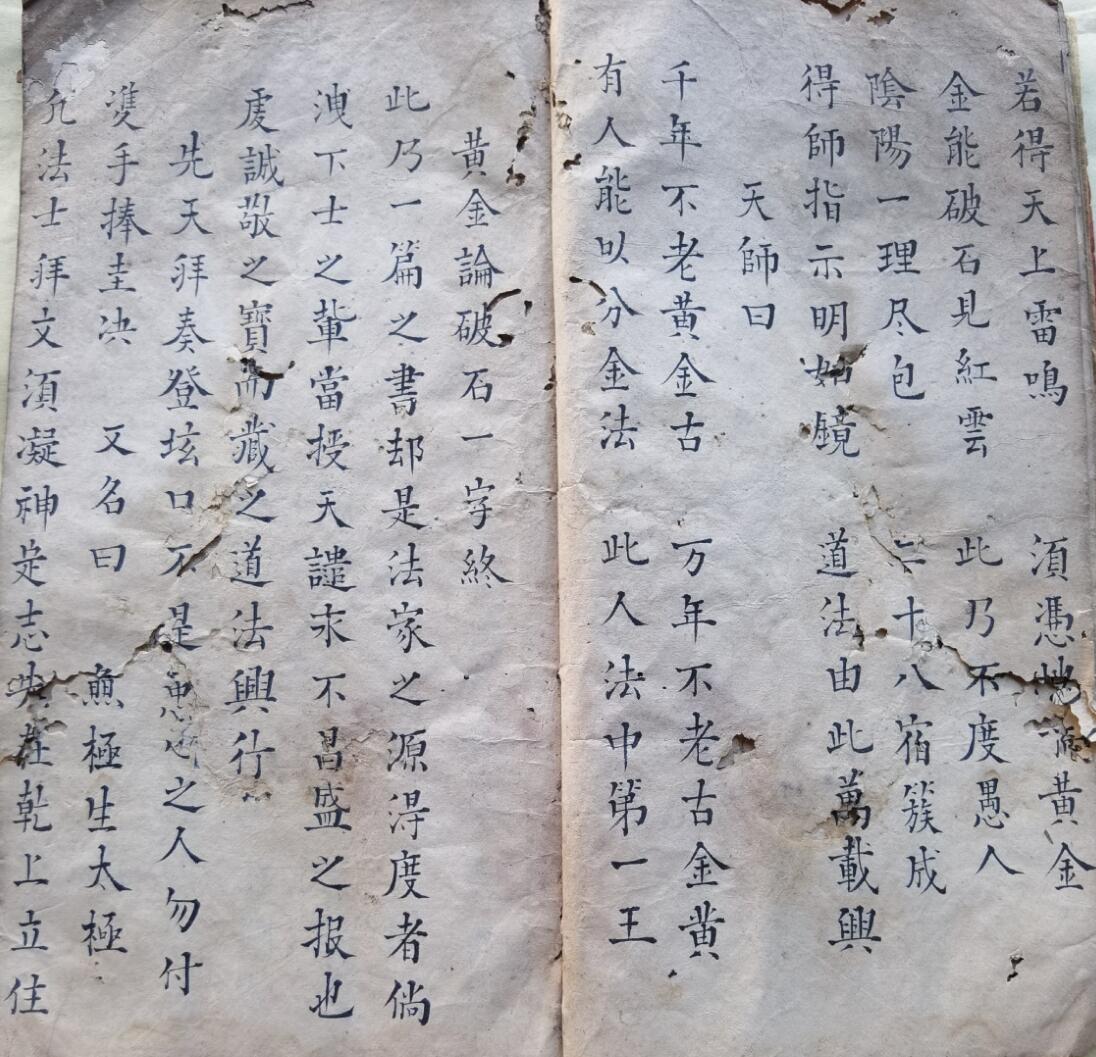 若得天上雷鳴 須憑 黃金
金能破石見紅雲 此乃不度愚人
陰陽一理尽包 二十八宿簇成
得師指示明如鏡 道法由此萬載興
天師曰
千年不老黃金古 万年不老古金黃
有人能以分金法 此人法中第一王
黃金論破石一字終
此乃一篇之書却是法家之源淂度者倘
洩下士之軰當授天譴求不昌盛之报也
虔誠敬之寶而藏之道法興行
先天拜奏登壇口 不是 之人勿付
雙手捧圭决 又名曰 無極生太極
凢法士拜文須凝神定志 在乾上立住